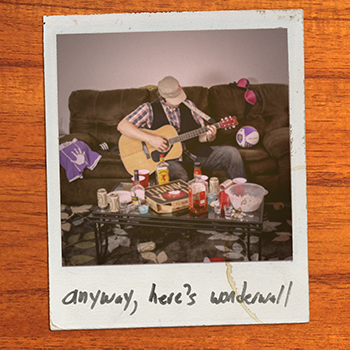 anyway, here's wonderwall